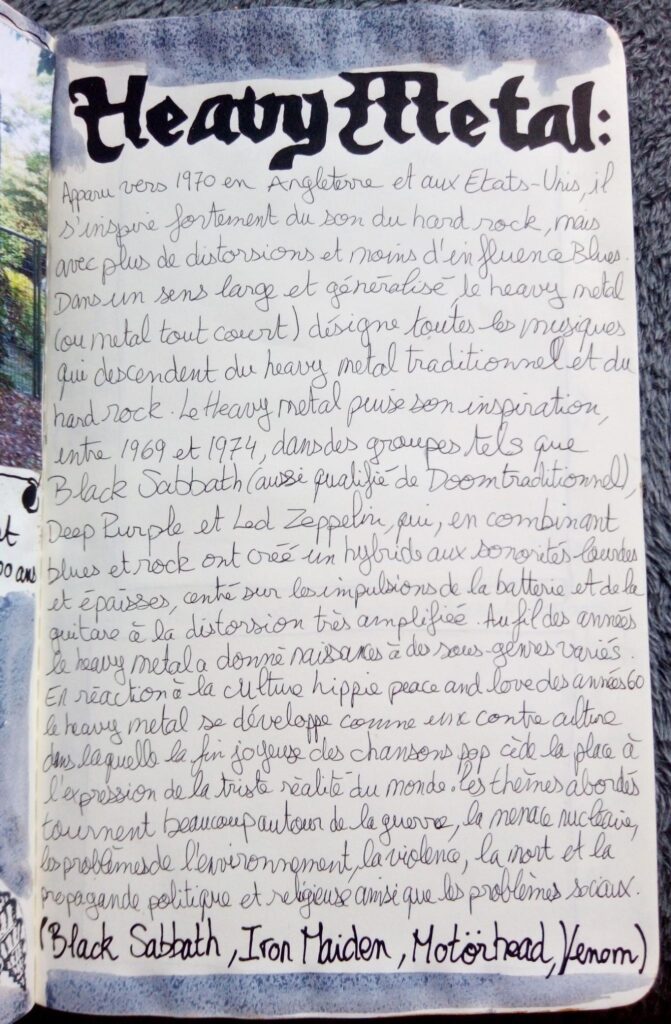 Heavy Metal:
Apparu vers 1970 en Angleterre et aux Etats-Unis, il
s'inspire fortement du son du hard rock, mais
avec plus de distorsions et moins d'influence Blues.
Dans un sens large et généralisé, le heavy metal
(ou metal tout court) désigne toutes les musiques
qui descendent du heavy metal traditionnel et du
hard rock. Le Heavy metal puise son inspiration,
entre 1969 et 1974, dans des groupes tels que
Black Sabbath (aussi qualifié de Doom traditionnel),
Deep Purple et Led Zeppelin, qui, en combinant
blues et rock ont créé un hybride aux sonorités lourdes
et épaisses, centré sur les impulsions de la batterie et de la
guitare à la distorsion très amplifiée. Au fil des années
le heavy metal a donné naissances à des sous-genres variés.
En réaction à la culture hippie peace and love des années 60
le heavy metal se développe comme une contre culture
dans laquelle la fin joyeuse des chansons pop cède la place à
l'expression de la triste réalité du monde. Les thèmes abordés
tournent beaucoup autour de la guerre, la menace nucléaire,
les problèmes de l'environnement, la violence, la mort et la
propagande politique et religieuse ainsi que les problèmes sociaux.
(Black Sabbath, Iron Maiden, Motörhead, Venom)
00 ans